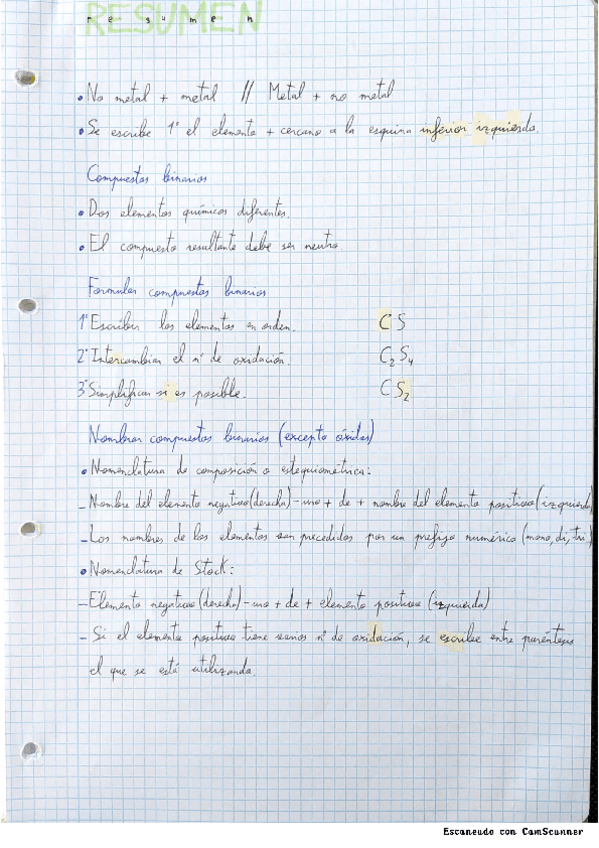 RESUMEN
resumen
• No metal + metal // Metal + no metal
• Se escribe 1º el elemento + cercano a la esquina inferior izquierda.
Compuestos binarios
• Dos elementos químicos diferentes.
• El compuesto resultante debe ser neutro
Formular compuestos binarios
1º Escribir los elementos en orden. C S
2º Intercambiar el nº de oxidación. C₂S₄
3º Simplifican si es posible. CS₂
Nombrar compuestos binarios (excepto óxidos)
• Nomenclatura de composición o estequiométrica:
- Nombre del elemento negativo (derecha) - uro + de + nombre del elemento positivo (izquierda)
- Los nombres de los elementos van precedidos por un prefijo numérico (mono, di, tri)
• Nomenclatura de Stock:
- Elemento negativo (derecha) - uro + de + elemento positivo (izquierda)
- Si el elemento positivo tiene varios nº de oxidación, se escribe entre paréntesis
el que se está utilizando.
Escaneado con CamScanner